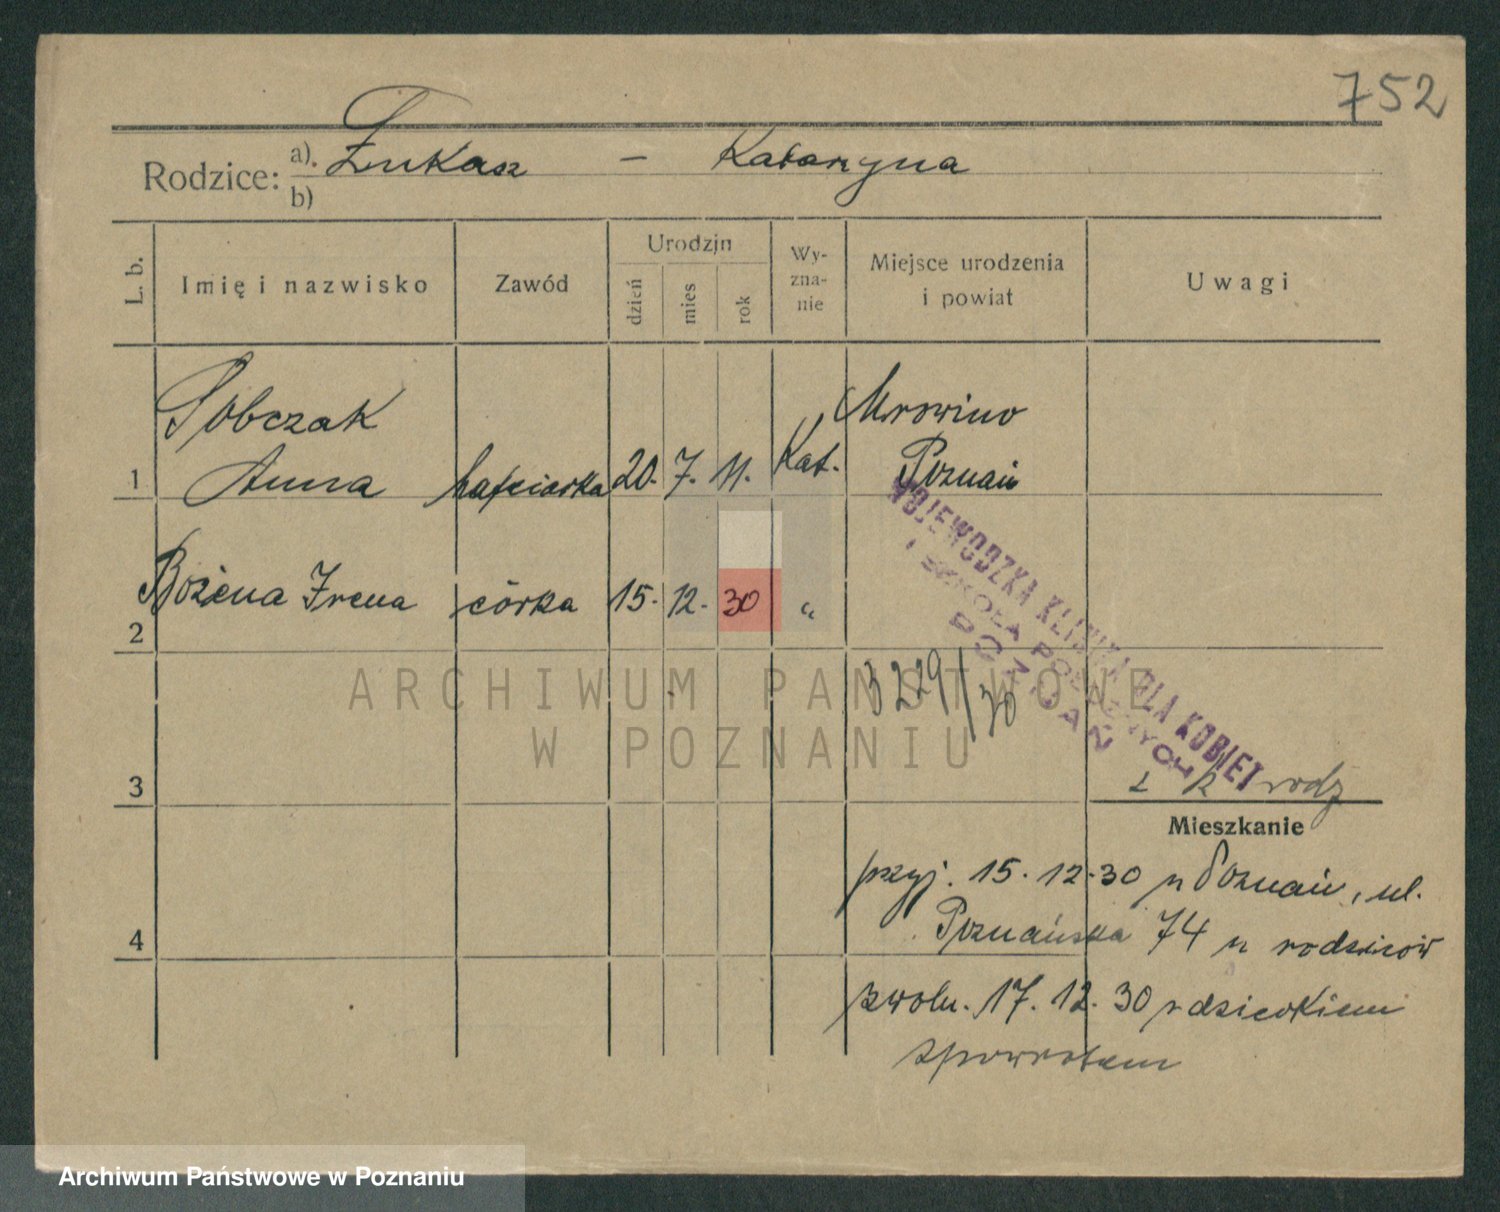 752
Rodzice: a). Łukasz – Katarzyna
b)
L. b.
Imię i nazwisko
Zawód
Urodzin
dzień
mies
rok
Wy-
zna-
nie
Miejsce urodzenia
i powiat
Uwagi
Sobczak
Anna
1
hafciarka
20. 7. 11.
Kat.
Mrowino
Poznań
Bożena Irena
2
córka
15. 12. 30
"
WOJEWÓDZKA KLINIKA DLA KOBIET
I SZKOŁA POŁOŻNYCH
POZNAŃ
3229/30
3
Mieszkanie
przyj. 15.12.30 z Poznań, ul.
Poznańska 74 u rodziców
4
zwoln. 17.12.30 z dzieckiem
zpowrotem
ARCHIWUM PAŃSTWOWE
W POZNANIU
Archiwum Państwowe w Poznaniu